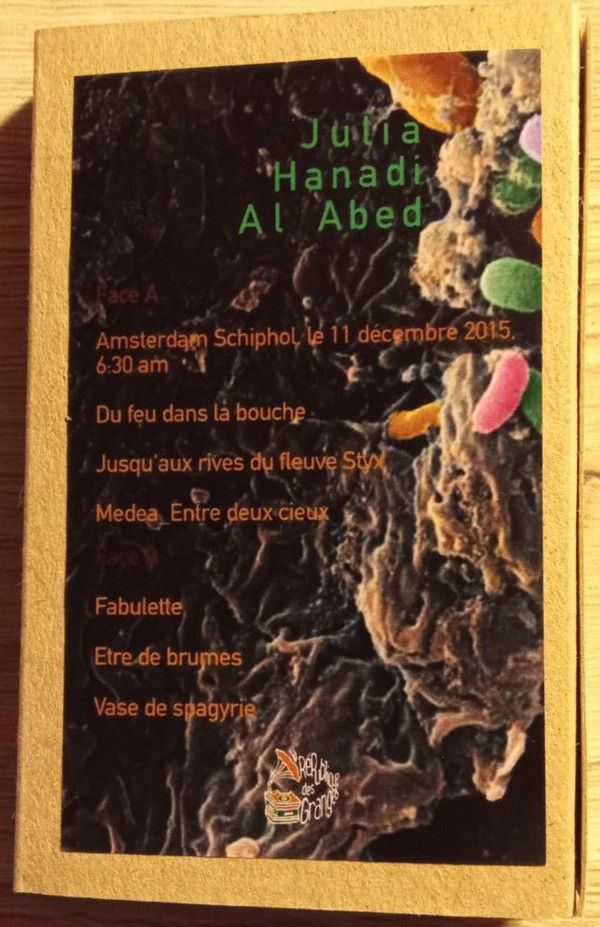 Julia
Hanadi
Al Abed
Face A
Amsterdam Schiphol, le 11 décembre 2015.
6:30 am
Du feu dans la bouche
Jusqu'aux rives du fleuve Styx
Medea. Entre deux cieux
Face B
Fabulette
Etre de brumes
Vase de spagyrie
RéPublique
des
Granges